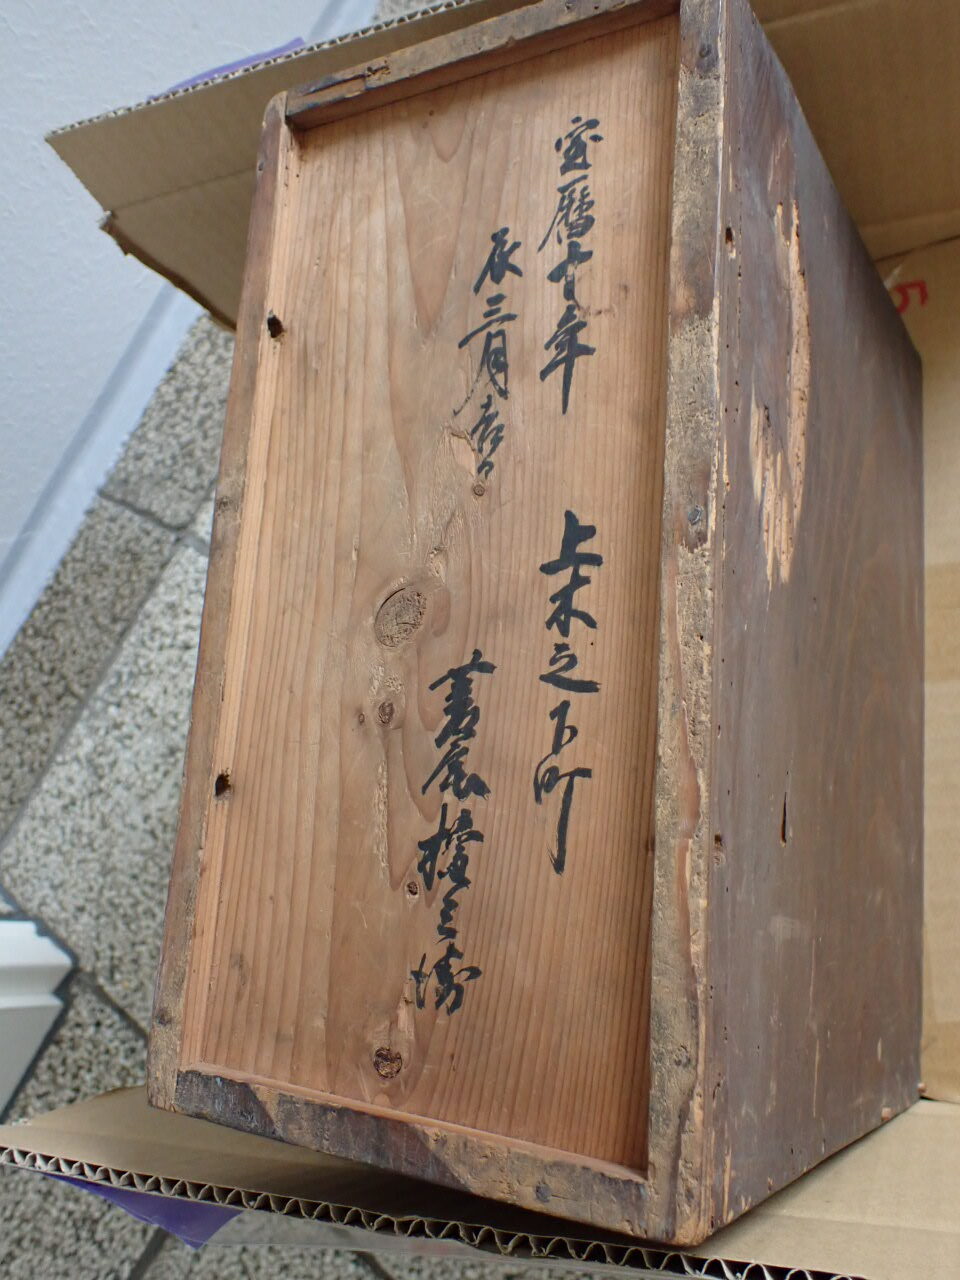 宝暦十年
辰三月吉日
上木之下町
権三